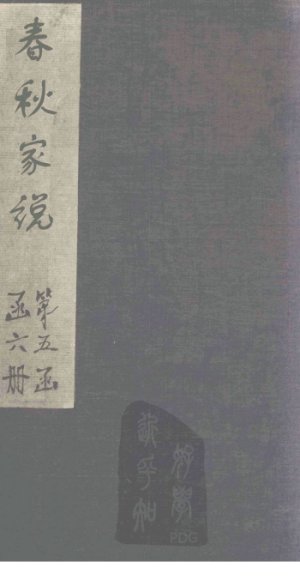 春秋家说
第五函
函六册
PDG